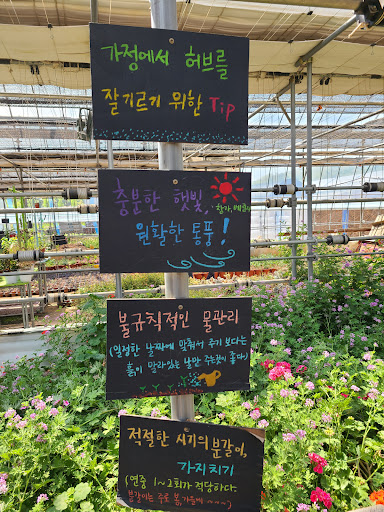 가정에서 허브를
잘기르기 위한 Tip
충분한 햇빛,
원활한 통풍!
불규칙적인 물관리
(일정한 날짜에 맞춰서 주기 보다는
흙이 말라있는 날만 주는것이 좋다)
적절한 시기의 분갈이,
가지치기
(연중 1~2회가 적당하다.
분갈이는 주로 봄,가을에